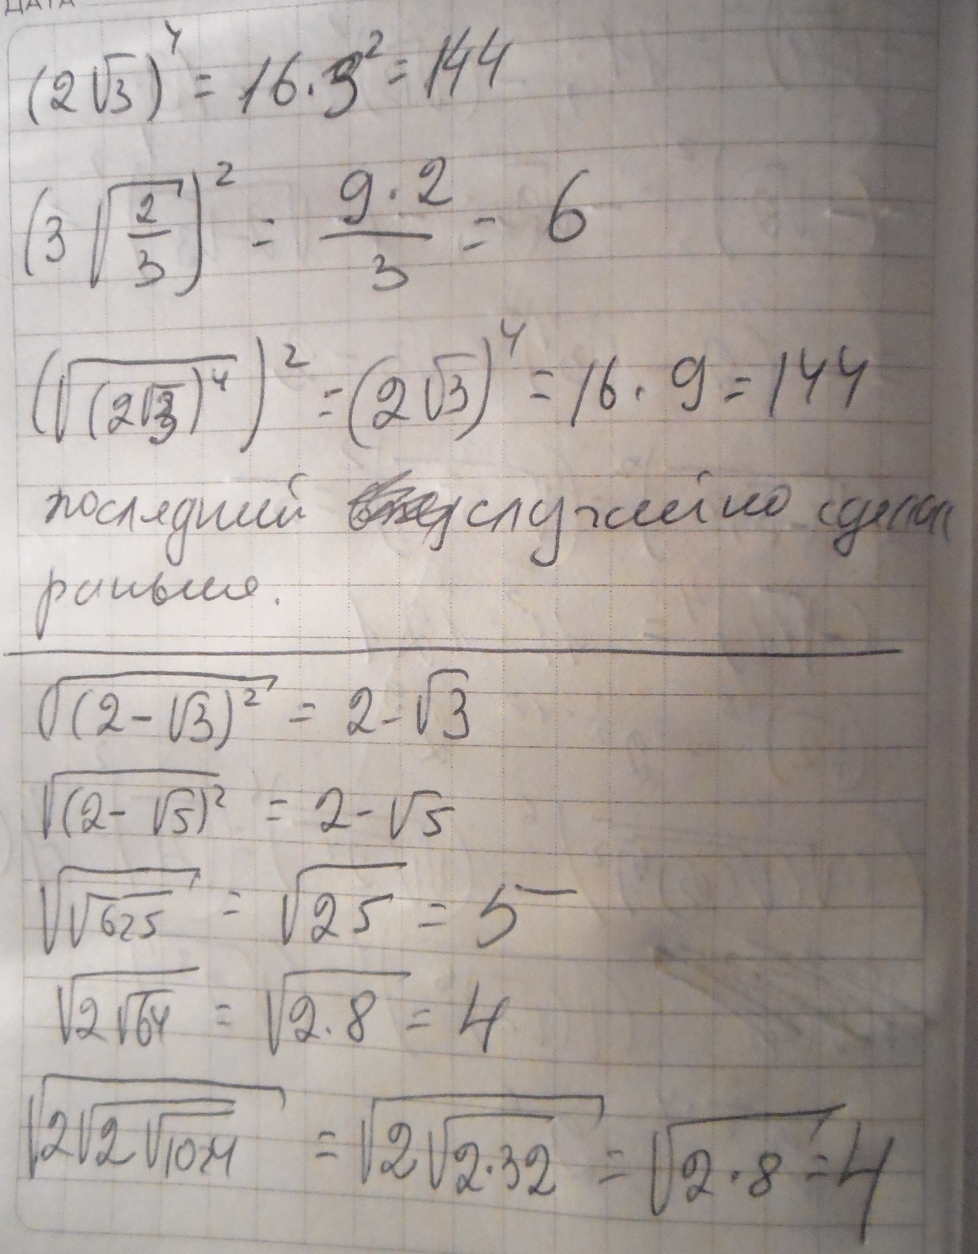 ДАТА
(2√3)⁴ = 16·3² = 144
(3√(2/3))² = (9·2)/3 = 6
(√((2√3)⁴))² = (2√3)⁴ = 16·9 = 144
последний случайно сделал
раньше.
√((2-√3)²) = 2-√3
√((2-√5)²) = 2-√5
√(√625) = √25 = 5
√(2√64) = √(2·8) = 4
√(2√(2√1024)) = √(2√(2·32)) = √(2·8) = 4